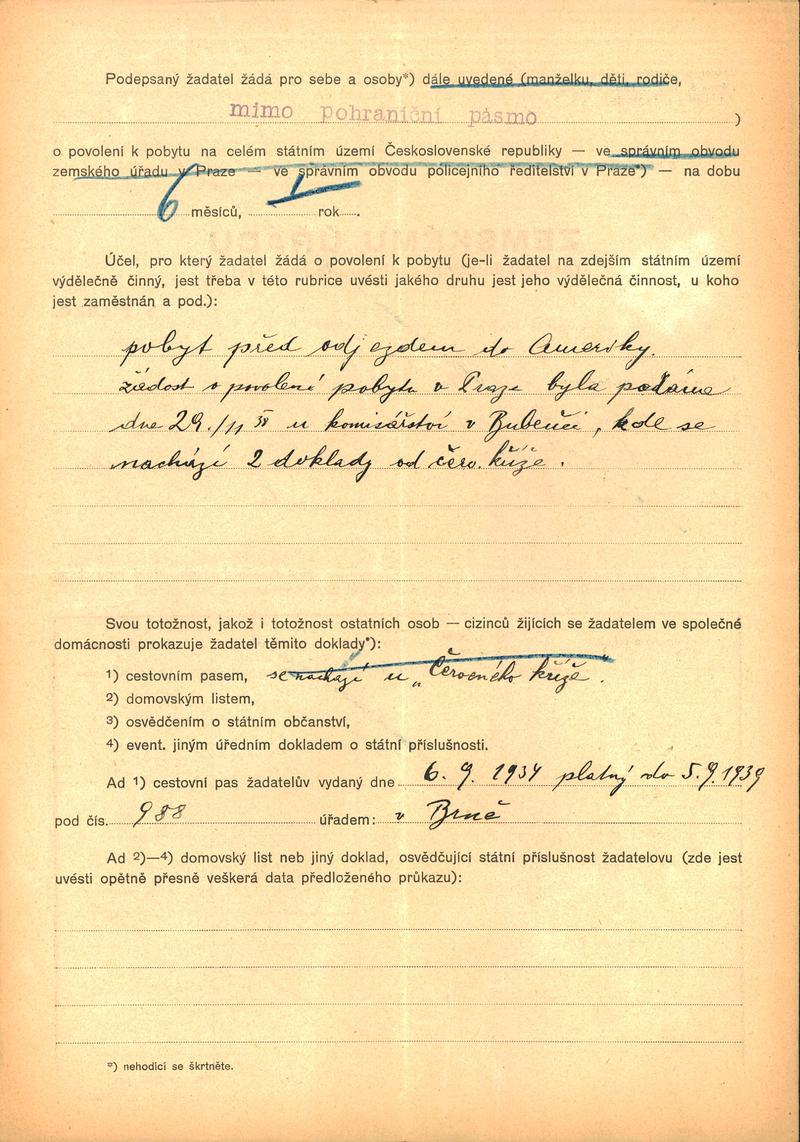 Podepsaný žadatel žádá pro sebe a osoby*) dále uvedené (manželku, děti, rodiče,
mimo pohraniční pásmo )
o povolení k pobytu na celém státním území Československé republiky — ve správním obvodu
zemského úřadu v Praze — ve správním obvodu policejního ředitelství v Praze*) — na dobu
6 měsíců, rok
Účel, pro který žadatel žádá o povolení k pobytu (je-li žadatel na zdejším státním území
výdělečně činný, jest třeba v této rubrice uvésti jakého druhu jest jeho výdělečná činnost, u koho
jest zaměstnán a pod.):
pobyt před odjezdem do Ameriky.
žádost o povolení pobytu v Praze byla podána
dne 29./11 38 u komisařství v Bubenči, kde se
nachází 2 doklady od červ. kříže.
Svou totožnost, jakož i totožnost ostatních osob — cizinců žijících se žadatelem ve společné
domácnosti prokazuje žadatel těmito doklady*):
1) cestovním pasem, se nachází u „Červeného kříže".
2) domovským listem,
3) osvědčením o státním občanství,
4) event. jiným úředním dokladem o státní příslušnosti.
Ad 1) cestovní pas žadatelův vydaný dne 6. 9. 1934 platný do 5. 9. 1939
pod čís. 988 úřadem: v Brně
Ad 2)—4) domovský list neb jiný doklad, osvědčující státní příslušnost žadatelovu (zde jest
uvésti opětně přesně veškerá data předloženého průkazu):
*) nehodící se škrtněte.